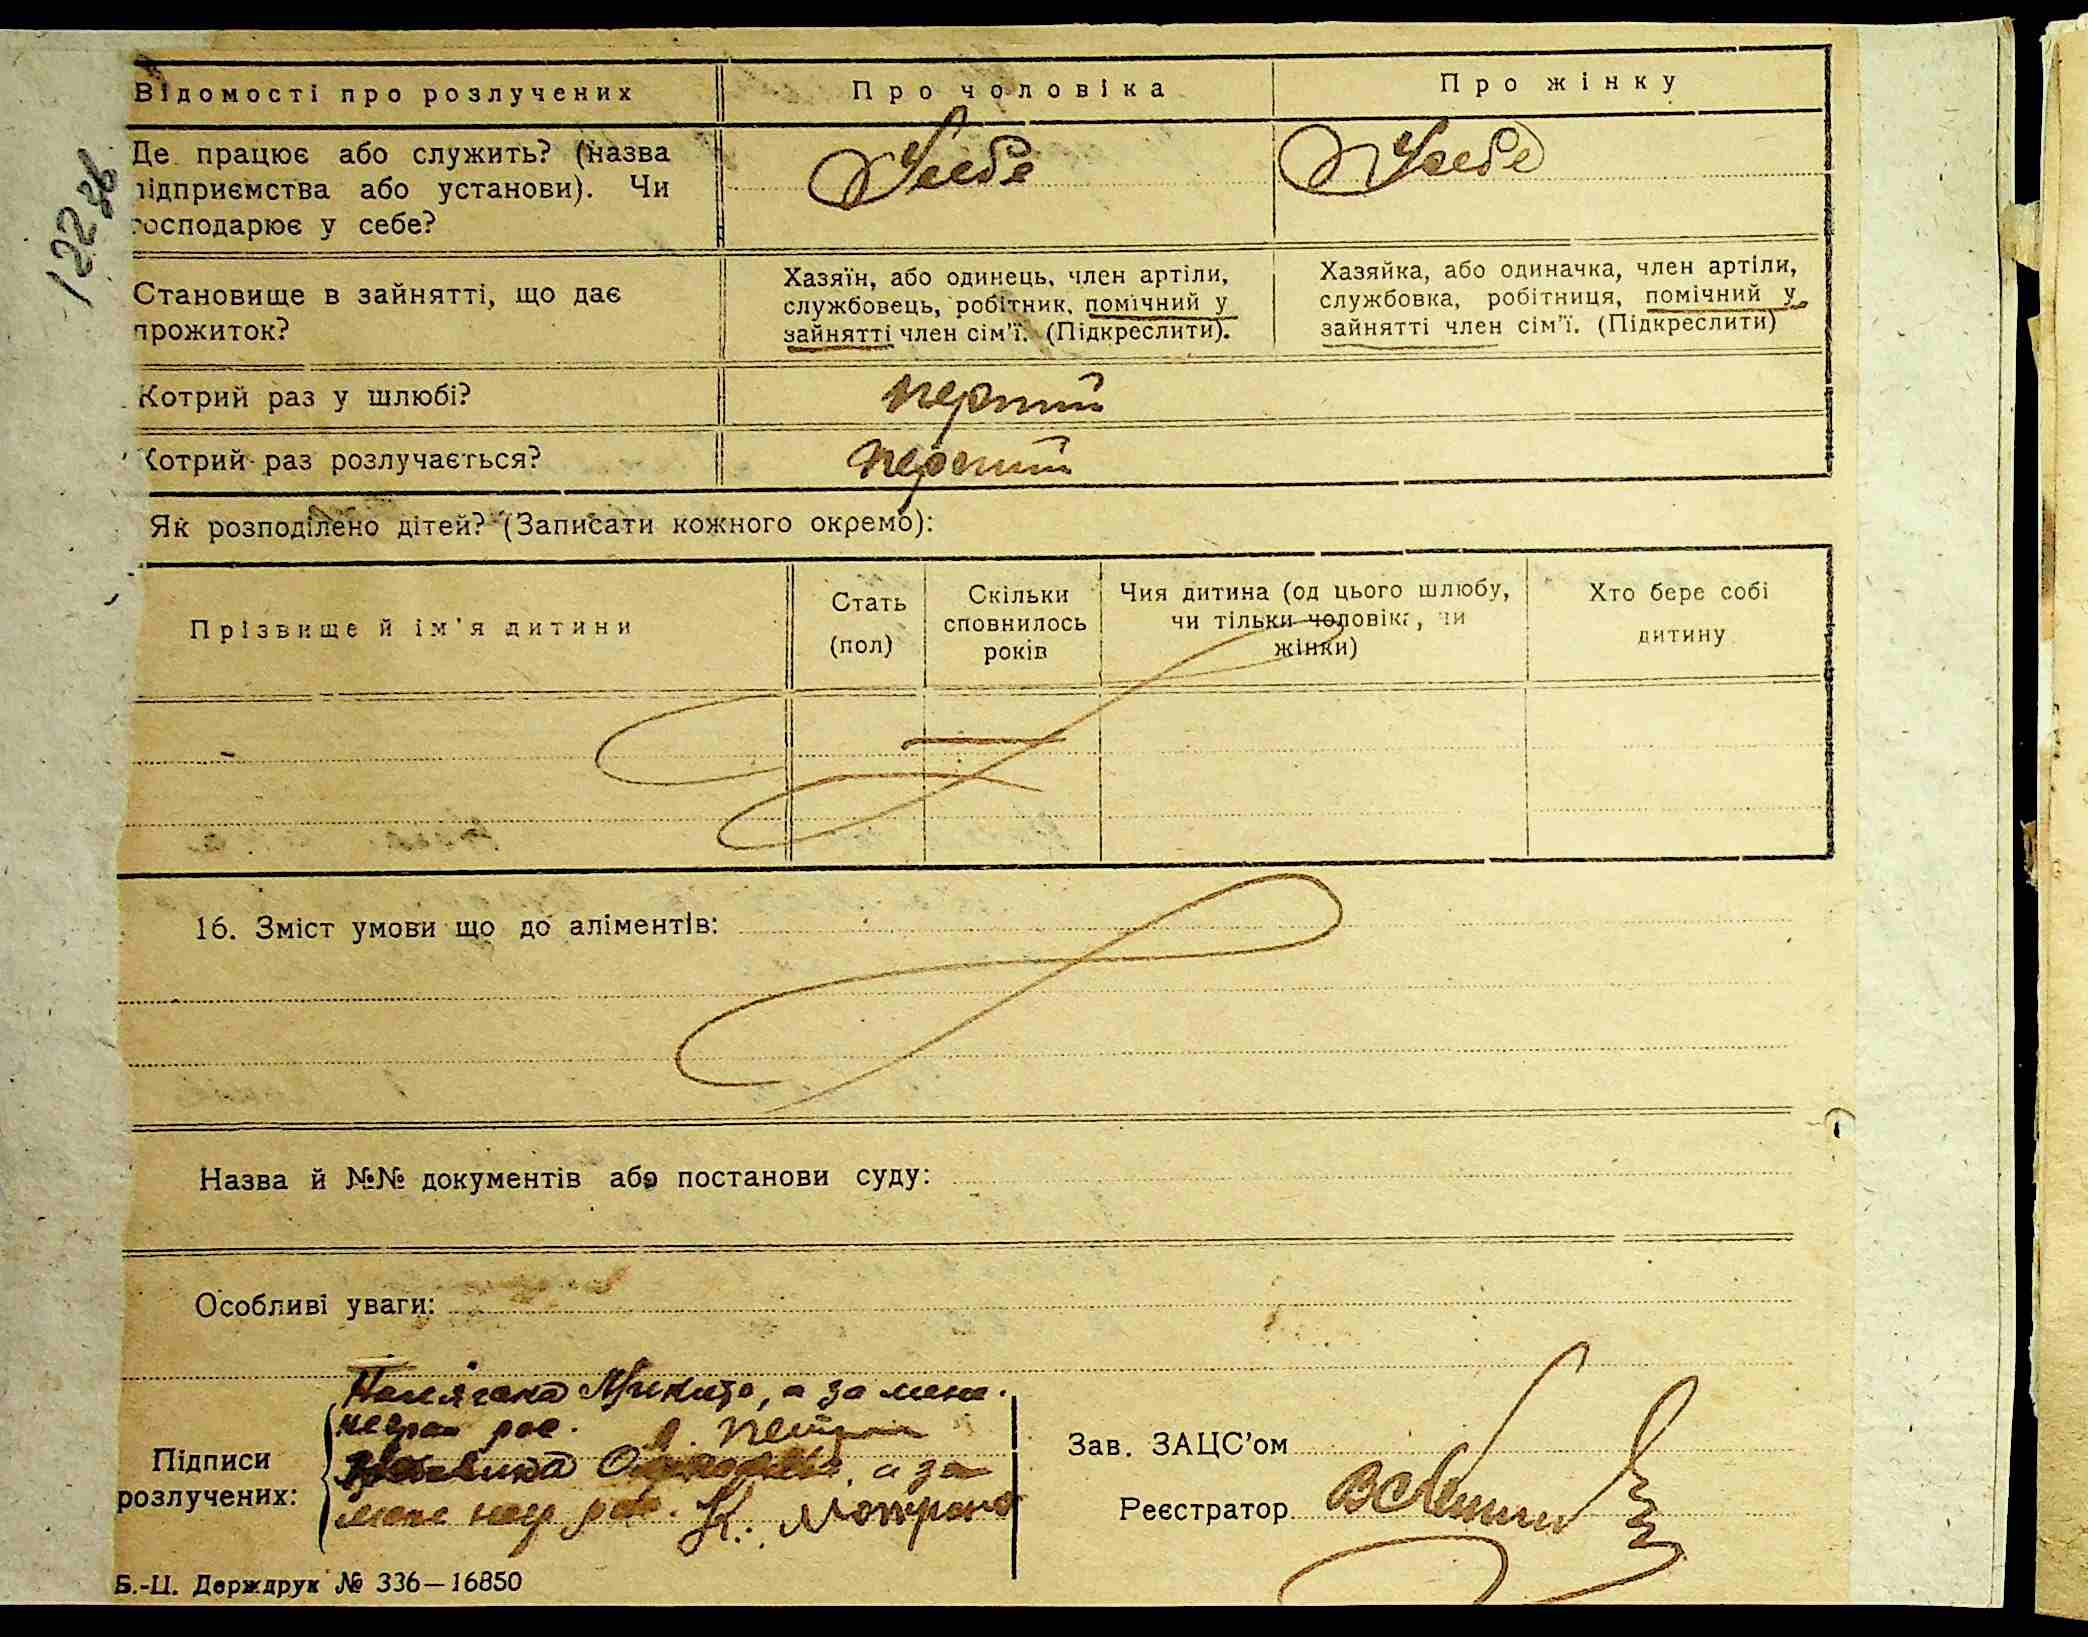 122 зв
Відомості про розлучених
Про чоловіка
Про жінку
Де працює або служить? (назва
підприємства або установи). Чи
господарює у себе?
У себе
У себе
Становище в зайнятті, що дає
прожиток?
Хазяїн, або одинець, член артіли,
службовець, робітник, помічний у
зайнятті член сім'ї. (Підкреслити).
Хазяйка, або одиначка, член артіли,
службовка, робітниця, помічний у
зайнятті член сім'ї. (Підкреслити)
Котрий раз у шлюбі?
перший
Котрий раз розлучається?
перший
Як розподілено дітей? (Записати кожного окремо):
Прізвище й ім'я дитини
Стать
(пол)
Скільки
сповнилось
років
Чия дитина (од цього шлюбу,
чи тільки чоловіка, чи
жінки)
Хто бере собі
дитину
16. Зміст умови що до аліментів:
Назва й №№ документів або постанови суду:
Особливі уваги:
Микита, а за мене
негра рос.
а за
мене негр рос. К.
Підписи
розлучених:
Зав. ЗАЦС'ом
Реєстратор
Б.-Ц. Держдрук № 336—16850